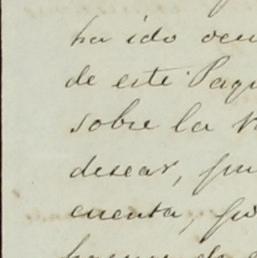 ha ido ocu
de este Paqu
sobre la v
desear, pu
cuenta, po